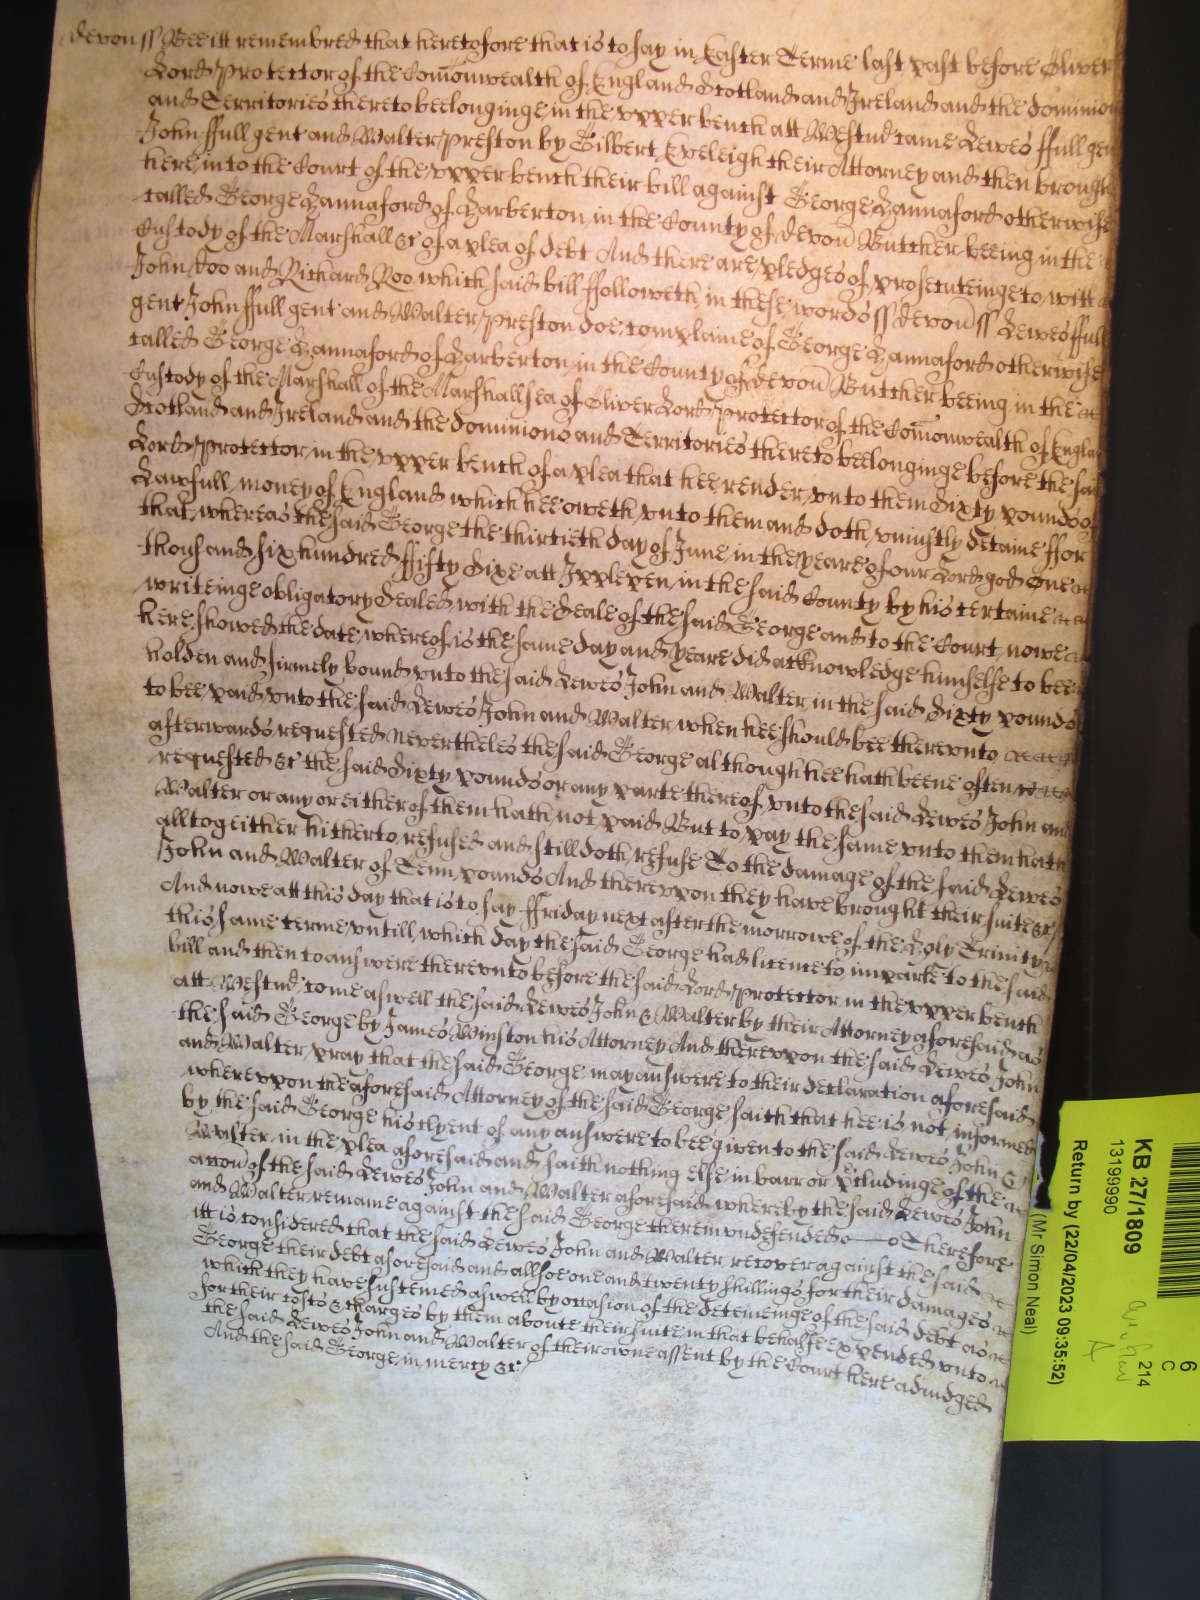 devon ss Bee itt remembred that heretofore that is to say in Easter Terme last past before Oliver
Lord Protector of the Com̄onwealth of England Scotland and Ireland and the dominions
and Territories thereto beelonginge in the upper bench att Westm̄ came Lewes ffull gen
John ffull gent and Walter Preston by Gilbert Eveleigh their Attorney and then brought
here into the Court of the upper bench their bill against George Hannaford otherwise
called George Hannaford of Harberton in the County of devon̄ Butcher beeing in the
Custody of the Marshall &c of a plea of debt And there are pledges of prosecuteinge to witt
John Doo and Richard Roo which said bill ffolloweth in these words ss devon̄ ss Lewes ffull
gent John ffull gent and Walter Preston doe complaine of George Hannaford otherwise
called George Hannaford of Harberton in the County of devon̄ Butcher beeing in the
Custody of the Marshall of the Marshallsea of Oliver Lord Protector of the Com̄onwealth of Englan
Scotland and Ireland and the dominions and Territories thereto beelonginge before the said
Lord Protector in the upper bench of a plea that hee render unto them Sixty pounds of
Lawfull money of England which hee oweth unto them and doth uniustly detaine ffor
that whereas the said George the thirtieth day of June in the yeare of our Lord god One
thousand six hundred ffifty Sixe att Ipplepen in the said County by his certaine
writeinge obligatory Sealed with the Seale of the said George and to the Court nowe
here showed the date whereof is the same day and yeare did acknowledge himselfe to bee
holden and firmely bound unto the said Lewes John and Walter in the said Sixty pounds
to bee paid unto the said Lewes John and Walter when hee should bee thereunto
afterwards requested Nevertheles the said George although hee hath beene often
requested &c the said Sixty pounds or any parte thereof unto the said Lewes John and
Walter or any or either of them hath not paid But to pay the same unto them hath
alltogeither hitherto refused and still doth refuse To the damage of the said Lewes
John and Walter of Tenn pounds And thereupon they have brought their suite &c
And nowe att this day that is to say ffriday next after the morrowe of the Holy Trinity
this same terme untill which day the said George had licence to imparle to the said
bill and then to answere thereunto before the said Lord Protector in the upper bench
att Westm̄ come aswell the said Lewes John & Walter by their Attorney aforesaid as
the said George by James Winston his Attorney And thereupon the said Lewes John
and Walter pray that the said George may answere to their declaration aforesaid
whereupon the aforesaid Attorney of the said George saith that hee is not informed
by the said George his clyent of any answere to bee given to the said Lewes John &
Walter in the plea aforesaid and saith nothing else in barr or p̄cludinge of the
accōn of the said Lewes John and Walter aforesaid whereby the said Lewes John
and Walter remaine against the said George therein undefended Therefore
itt is considered that the said Lewes John and Walter recover against the said
George their debt aforesaid and allsoe one and twenty shillings for their damages
which they have susteined aswell by occasion of the deteineinge of the said debt as
for their costs & charges by them aboute their suite in that behalfe expended unto
the said Lewes John and Walter of their owne assent by the Court here adiudged
And the said George in mercy &c
KB 27/1809
13199990
Return by (22/04/2023 09:35:52)
(Mr Simon Neal)
6
C
214
A